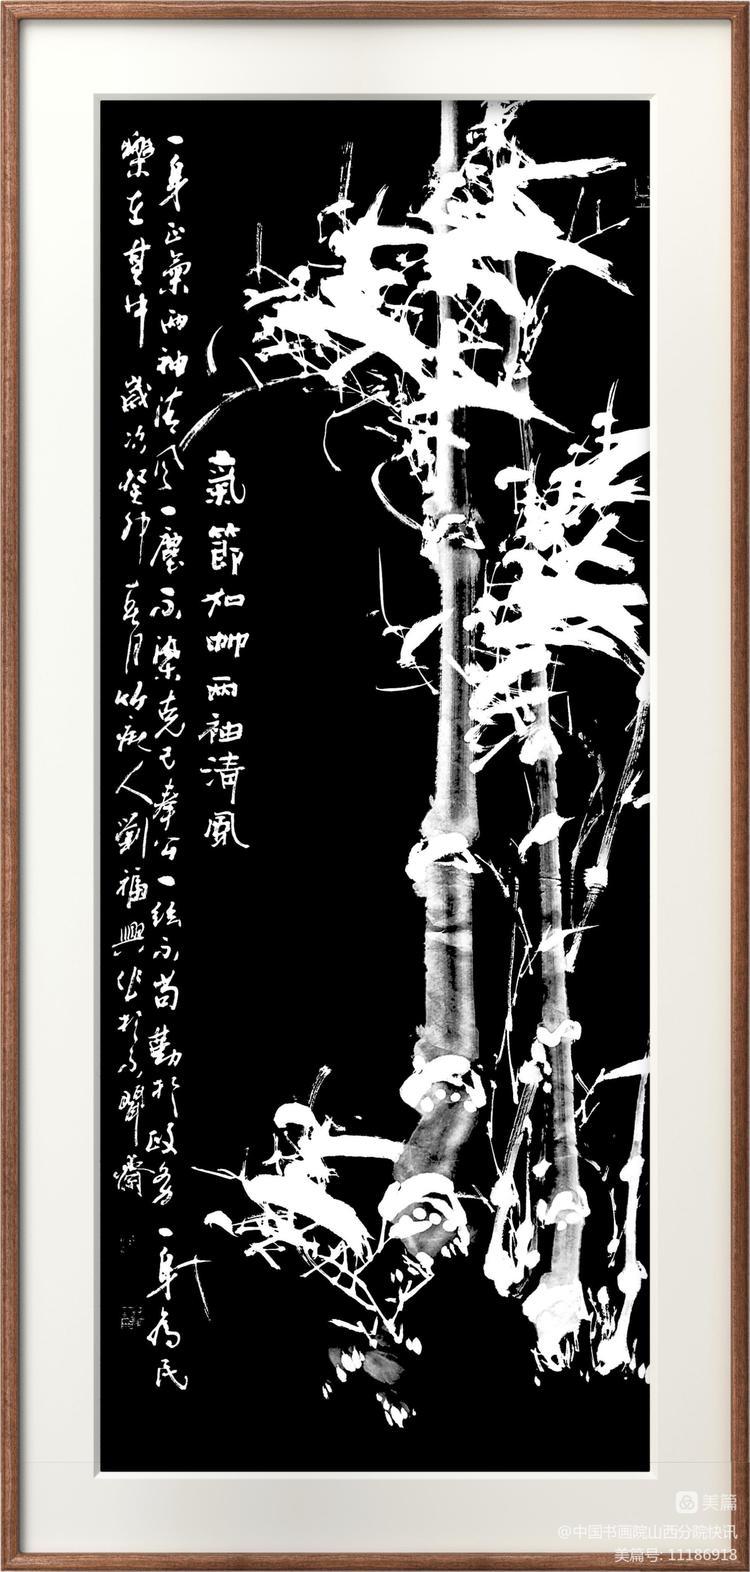 氣節如 兩袖清風
一身正氣兩袖清風一塵不染克己奉公一絲不苟勤於政務一身為民
樂在其中 歲次癸卯春月竹痴人劉福興作於不聞齋
美篇
@中国书画院山西分院快讯
美篇号: 11186918